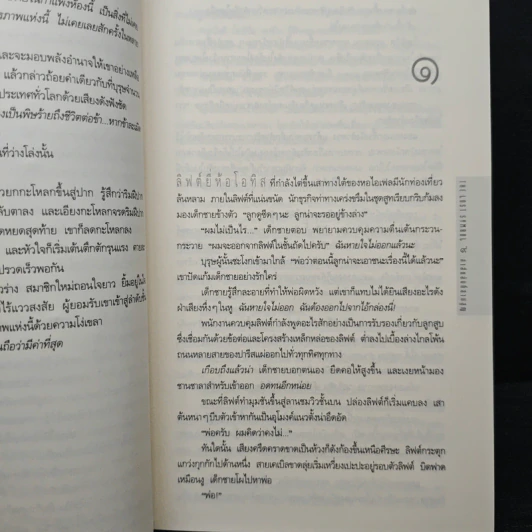 ภาพแห่งนี้ ไม่เคยเลยสักครั้งใน
และจะมอบพลังอำนาจให้เขาอย่างเหลือ
แล้วกล่าวถ้อยคำเดียวกับที่บุรุษจำนวน
ประเทศทั่วโลกด้วยเสียงดังฟังชัด
เป็นพิษร้ายถึงชีวิตต่อข้า...หากข้าละเมิด
ที่ว่างโล่งนั้น
วยกกะโหลกขึ้นสู่ปาก รู้สึกว่าริมฝีปาก
ลับตาลง และเอียงกะโหลกจรดริมฝีปาก
หยดสุดท้าย เขาก็ลดกะโหลกลง
และหัวใจก็เริ่มเต้นตึกตักรุนแรง
ปรวดเร็วพอกัน
ร่าง สมาชิกใหม่ถอนใจยาว ยิ้มอยู่ใน
ไร้แววสงสัย ผู้ยอมรับเขาเข้าสู่ลำดับชั้น
ภาพแห่งนี้ด้วยความโง่เขลา
ถือว่ามีค่าที่สุด
๑
ลิฟต์ยี่ห้อโอทิส ที่กำลังไต่ขึ้นเสาทางใต้ของหอไอเฟลมีนักท่องเที่ยว
ล้นหลาม ภายในลิฟต์ที่แน่นขนัด นักธุรกิจท่าทางเคร่งขรึมในชุดสูทเรียบกริบก้มลง
มองเด็กชายข้างตัว "ลูกดูซีดๆนะ ลูกน่าจะรออยู่ข้างล่าง"
"ผมไม่เป็นไร..." เด็กชายตอบ พยายามควบคุมความตื่นเต้นกระวน-
กระวาย "ผมจะออกจากลิฟต์ในชั้นถัดไปครับ" ฉันหายใจไม่ออกแล้วนะ
บุรุษผู้นั้นชะโงกเข้ามาใกล้ "พ่อว่าตอนนี้ลูกน่าจะเอาชนะเรื่องนี้ได้แล้วนะ"
เขาปัดแก้มเด็กชายอย่างรักใคร่
เด็กชายรู้สึกละอายที่ทำให้พ่อผิดหวัง แต่เขาก็แทบไม่ได้ยินเสียงอะไรดัง
ฝ่าเสียงหึ่งๆในหู ฉันหายใจไม่ออก ฉันต้องออกไปจากไอ้กล่องนี่!
พนักงานควบคุมลิฟต์กำลังพูดอะไรสักอย่างเป็นการรับรองเกี่ยวกับลูกสูบ
ซึ่งเชื่อมกันด้วยข้อต่อและโครงสร้างเหล็กหล่อของลิฟต์ ต่ำลงไปเบื้องล่างไกลโพ้น
ถนนหลายสายของปารีสแผ่ออกไปทั่วทุกทิศทุกทาง
เกือบถึงแล้วน่า เด็กชายบอกตนเอง ยืดคอให้สูงขึ้น และเงยหน้ามอง
ชานชาลาสำหรับเข้าออก อดทนอีกหน่อย
ขณะที่ลิฟต์ทำมุมชันขึ้นสู่ลานชมวิวชั้นบน ปล่องลิฟต์ก็เริ่มแคบลง เสา
ค้ำยันหนาๆบีบตัวเข้าหากันเป็นอุโมงค์แนวตั้งน่าอึดอัด
"พ่อครับ ผมคิดว่าคงไม่..."
ทันใดนั้น เสียงครืดคราดขาดเป็นห้วงก็ดังก้องขึ้นเหนือศีรษะ ลิฟต์กระตุก
แกว่งกุกกักไปด้านหนึ่ง สายเคเบิลขาดลุ่ยเริ่มเหวี่ยงเปะปะอยู่รอบตัวลิฟต์ บิดฟาด
เหมือนงู เด็กชายโผไปหาพ่อ
"พ่อ!"